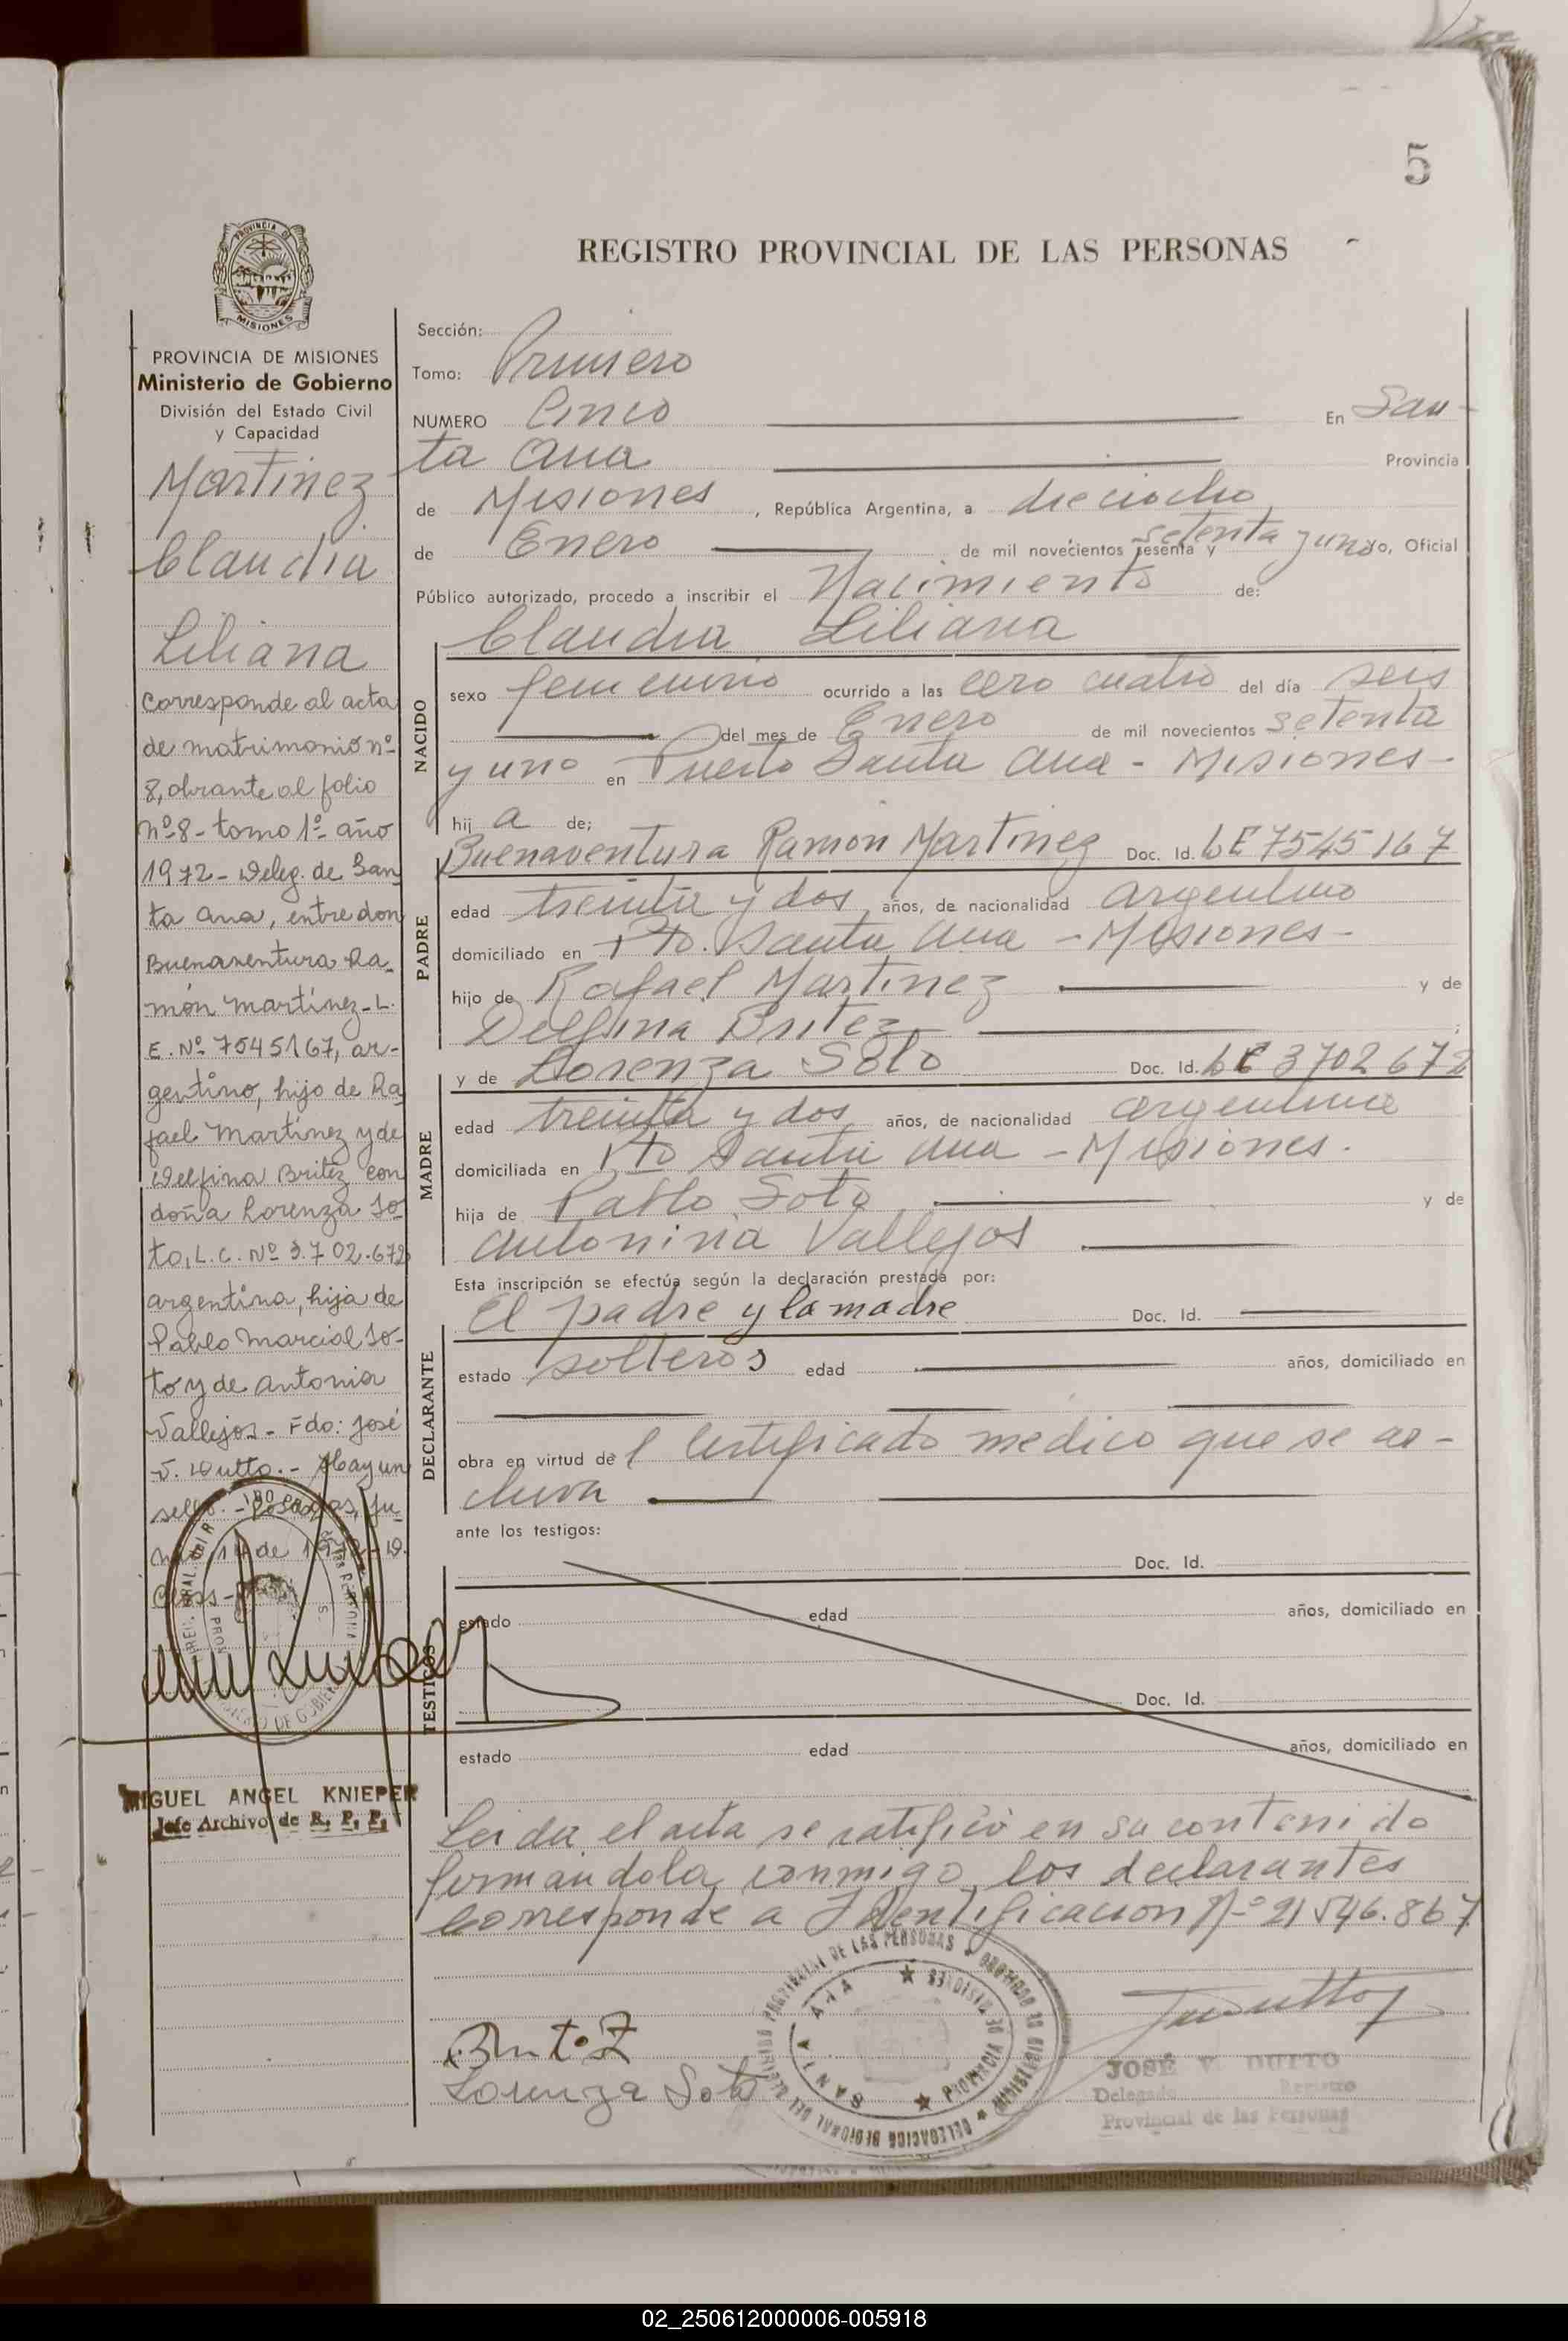 5
REGISTRO PROVINCIAL DE LAS PERSONAS
PROVINCIA DE MISIONES
Ministerio de Gobierno
División del Estado Civil
y Capacidad
Martinez
Claudia
Liliana
Corresponde al acta
de matrimonio nº
8, obrante al folio
nº 8 - tomo 1º año
1972 - Deleg. de San
ta Ana, entre don
Buenaventura Ra
món Martínez - L.
E. Nº 7545167, ar-
gentino, hijo de Ra
fael Martínez y de
Delfina Britez con
doña Lorenza So
to, L.C. Nº 3.702.672
argentina, hija de
Pablo Marcial So-
to y de Antonia
Vallejos - Fdo: José
V. Dutto. - Hay un
sello. - Posadas, Ju
MIGUEL ANGEL KNIEPER
Jefe Archivo de R. P. P.
Sección:
Tomo: Primero
NUMERO Cinco En San-
ta Ana Provincia
de Misiones, República Argentina, a dieciocho
de Enero de mil novecientos sesenta y setenta y uno, Oficial
Público autorizado, procedo a inscribir el Nacimiento de:
Claudia Liliana
NACIDO
sexo femenino ocurrido a las cero cuatro del día seis
del mes de Enero de mil novecientos setenta
y uno en Puerto Santa Ana - Misiones -
hij a de;
PADRE
Buenaventura Ramon Martinez Doc. Id. LE 7545167
edad treinta y dos años, de nacionalidad argentino
domiciliado en Pto. Santa Ana - Misiones -
hijo de Rafael Martinez y de
Delfina Britez ;
MADRE
y de Lorenza Soto Doc. Id. LC 3702672
edad treinta y dos años, de nacionalidad argentina
domiciliada en Pto Santa Ana - Misiones.
hija de Pablo Soto y de
Antonina Vallejos
Esta inscripción se efectúa según la declaración prestada por:
DECLARANTE
El padre y la madre Doc. Id.
estado solteros edad años, domiciliado en
obra en virtud del Certificado medico que se ar-
chiva
ante los testigos:
TESTIGOS
Doc. Id.
estado edad años, domiciliado en
Doc. Id.
estado edad años, domiciliado en
Leida el acta se ratificó en su contenido
firmandola conmigo los declarantes
Corresponde a Identificacion Nº 21546.867
Lorenza Soto
SANTA ANA ★ PROVINCIA DE MISIONES ★
JOSÉ V. DUTTO
Delegado Registro
Provincial de las Personas
02_250612000006-005918